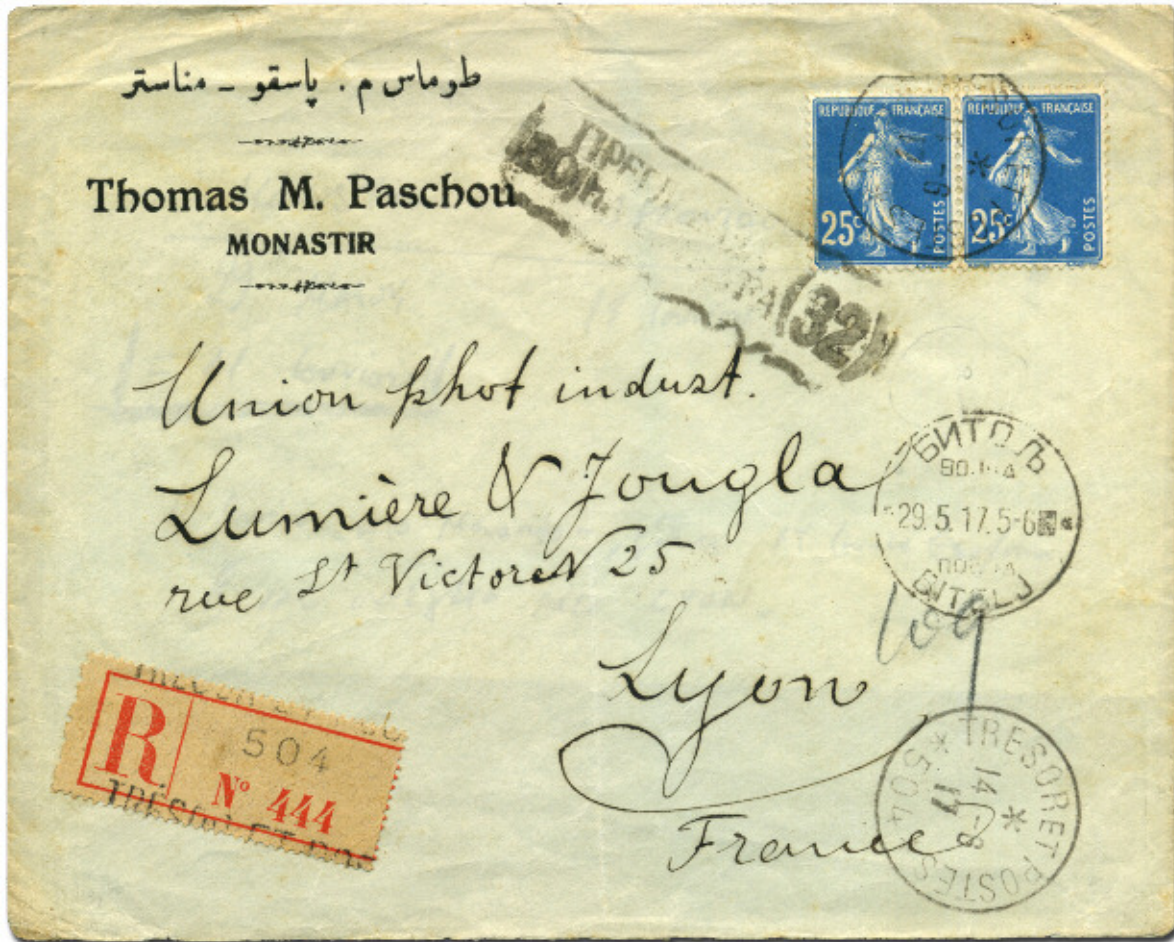 طوماس م. پاسقو - مناستر
Thomas M. Paschou
MONASTIR
30h.
(32)
REPUBLIQUE FRANÇAISE
25c
POSTES
REPUBLIQUE FRANÇAISE
25c
POSTES
Union phot indust.
Lumière & Jougla
rue St Victor 25
Lyon
France
БИТОЉ
29.5.17.5-6
BITOLJ
R
504
Nº 444
TRÉSOR ET POS
TRESOR ET POSTES
14 -6
17
* 504 *